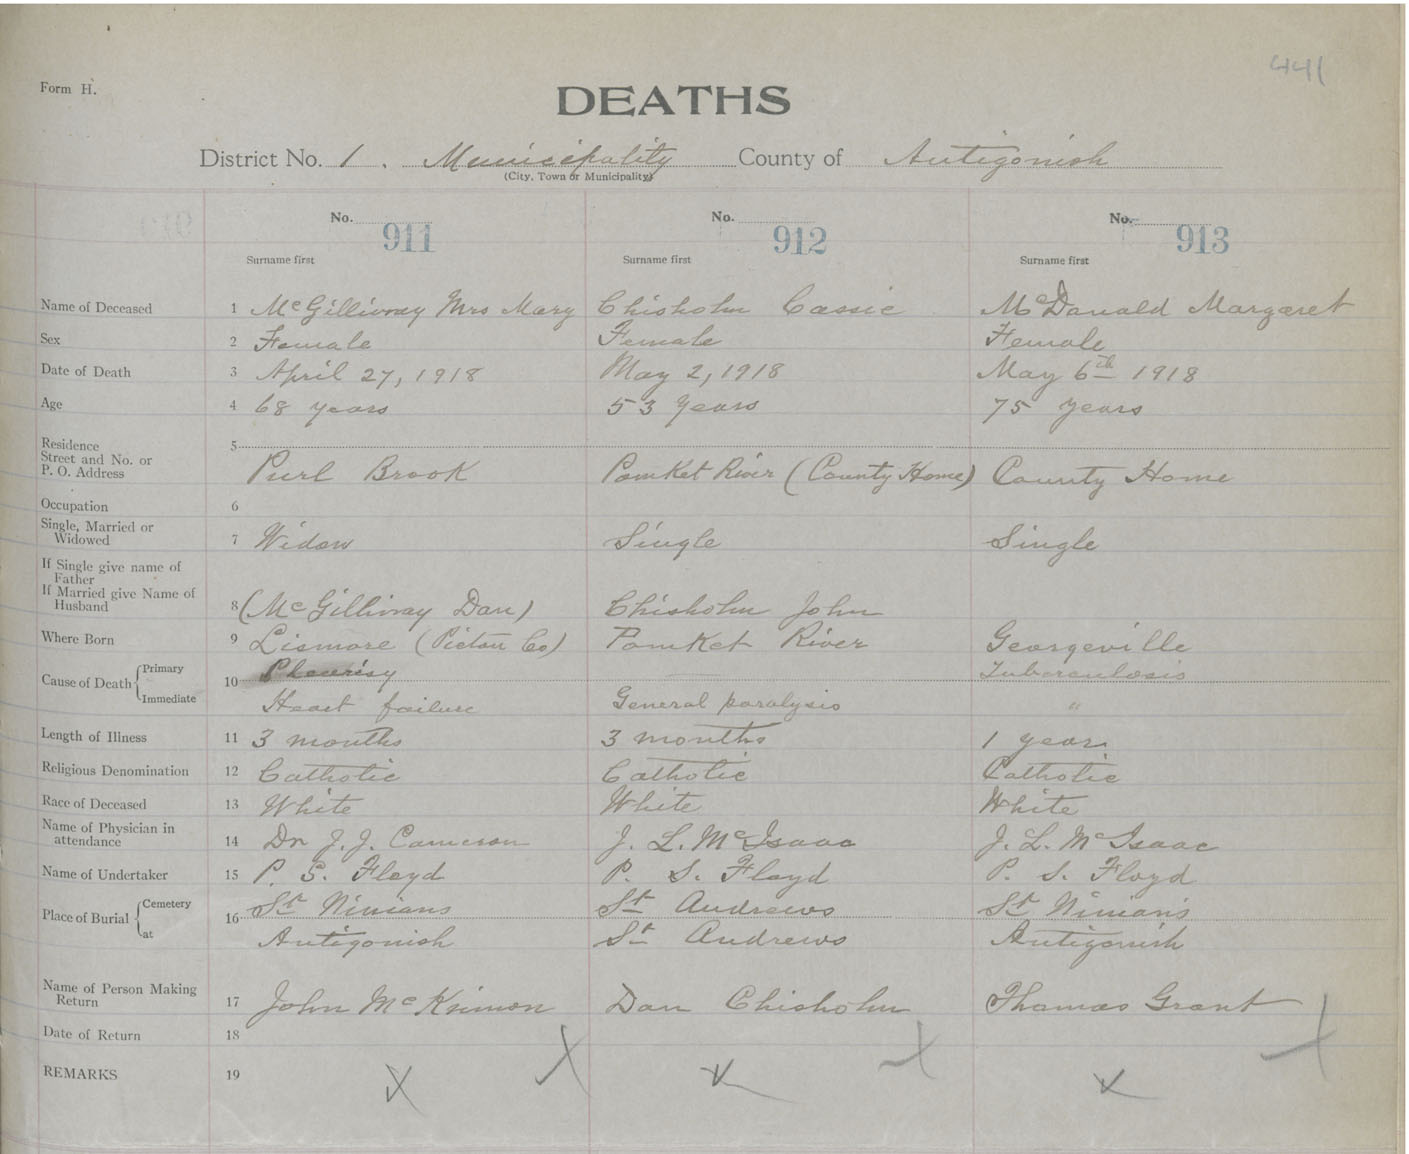 441
Form H.
DEATHS
District No. 1. Municipality County of Antigonish
(City, Town or Municipality)
No. No. No.
911 912 913
Surname first Surname first Surname first
Name of Deceased 1 McGillivray Mrs Mary Chisholm Cassie McDonald Margaret
Sex 2 Female Female Female
Date of Death 3 April 27, 1918 May 2, 1918 May 6th 1918
Age 4 68 years 53 years 75 years
Residence 5
Street and No. or
P. O. Address Purl Brook Pomket River (County Home) County Home
Occupation 6
Single, Married or
Widowed 7 Widow Single Single
If Single give name of
Father
If Married give Name of
Husband 8 (McGillivray Dan) Chisholm John
Where Born 9 Lismore (Pictou Co) Pomket River Georgeville
Cause of Death Primary 10 Pleurisy Tuberculosis
Immediate Heart failure General paralysis "
Length of Illness 11 3 months 3 months 1 year.
Religious Denomination 12 Catholic Catholic Catholic
Race of Deceased 13 White White White
Name of Physician in
attendance 14 Dr J. J. Cameron J. L. McIsaac J. L. McIsaac
Name of Undertaker 15 P. S. Floyd P. S. Floyd P. S. Floyd
Place of Burial Cemetery 16 St Ninians St Andrews St Ninian's
at Antigonish St Andrews Antigonish
Name of Person Making
Return 17 John McKinnon Dan Chisholm Thomas Grant
Date of Return 18
REMARKS 19